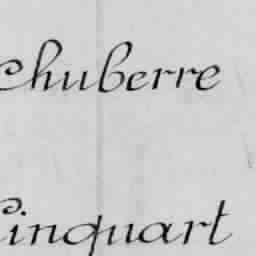 Chuberre
Cinquart